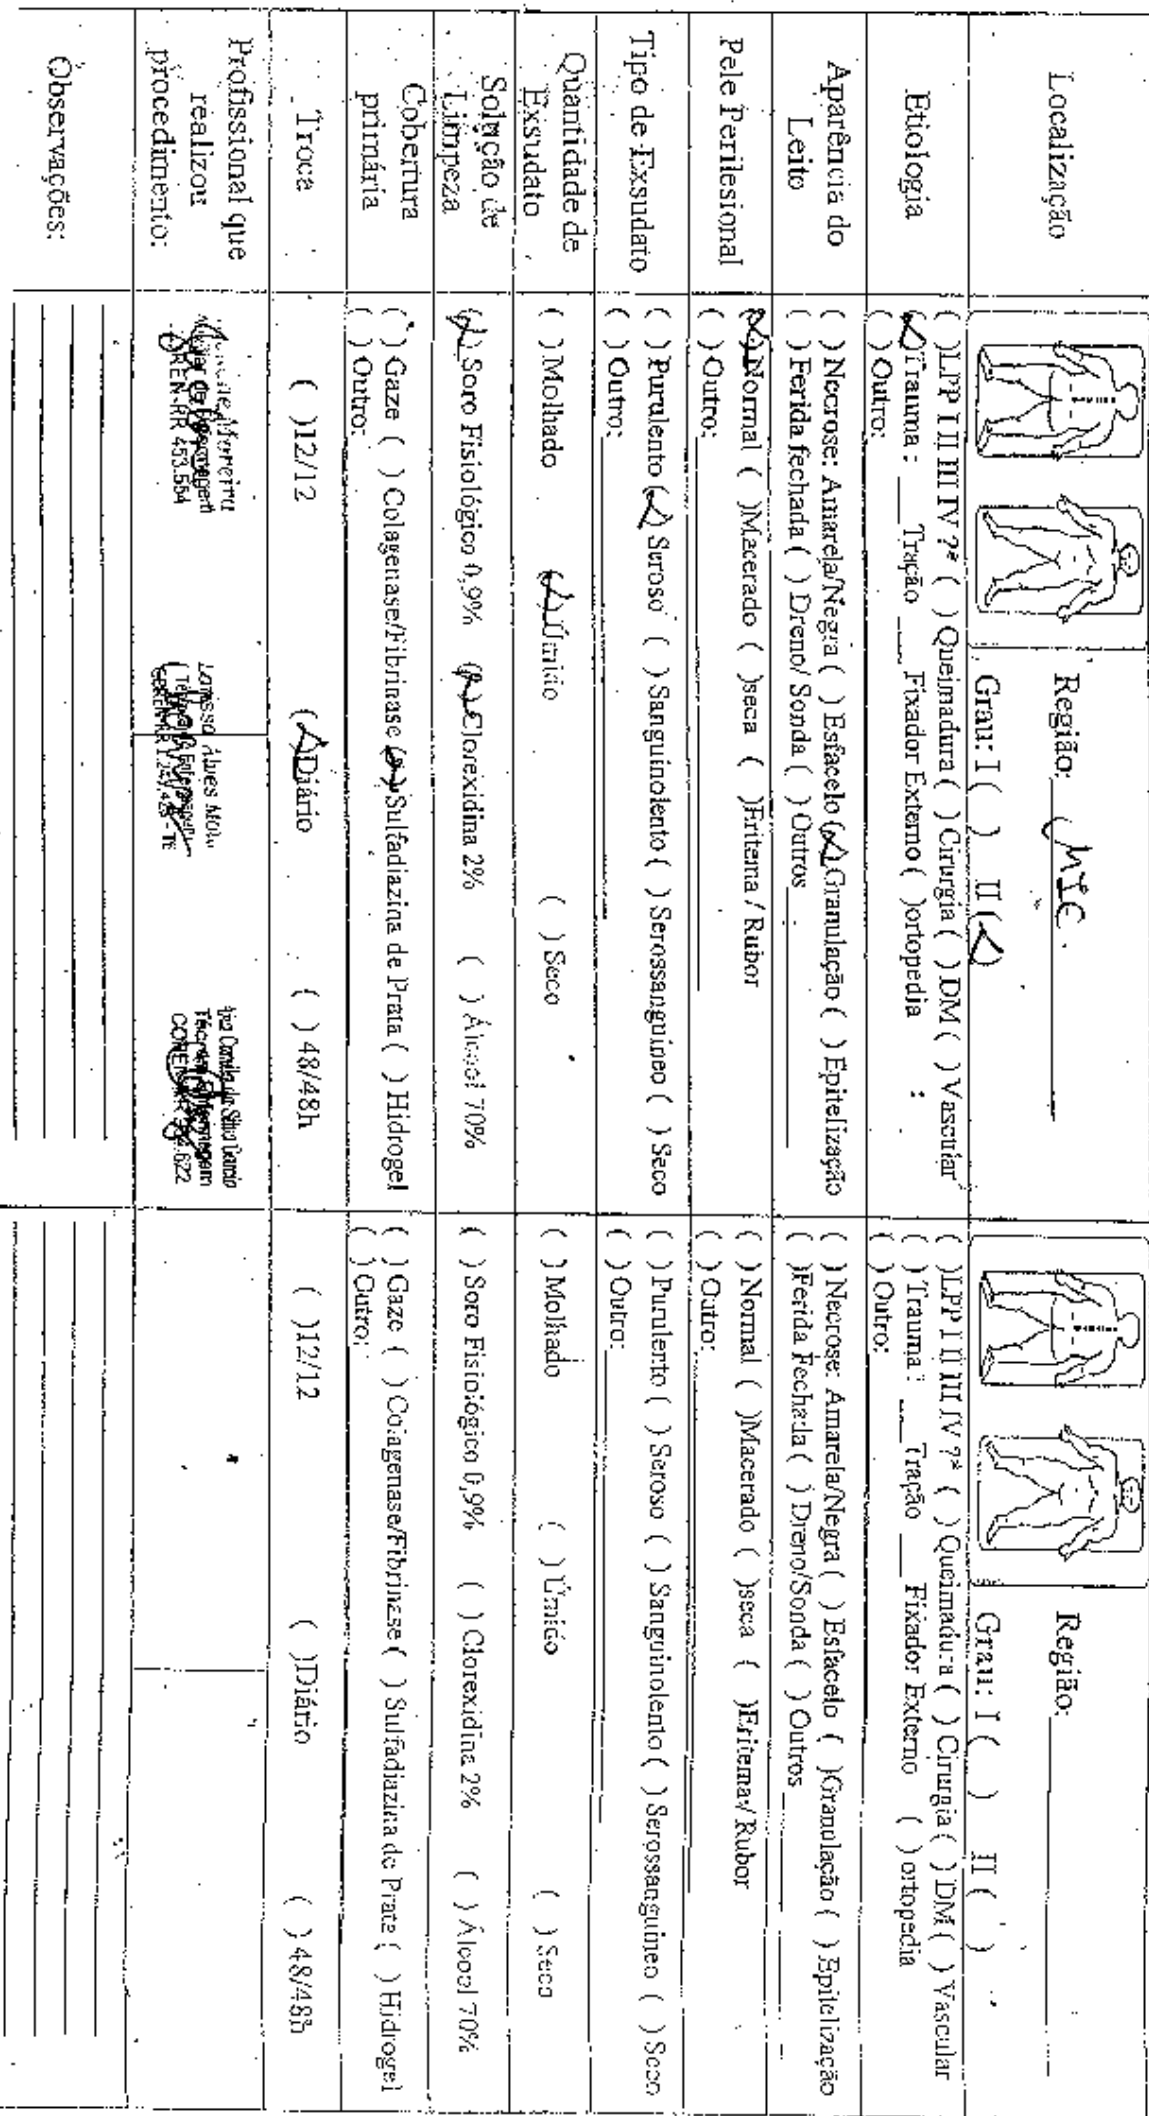 Localização
Região: MIE
Grau: I ( ) II (X)
Região:
Grau: I ( ) II ( )
Etiologia
( )LPP I II III IV ?ª ( ) Queimadura ( ) Cirurgia ( ) DM ( ) Vascular
(X)Trauma : ___ Tração ___ Fixador Externo ( )ortopedia :
( ) Outro:
( )LPP I II III IV ?ª ( ) Queimadura ( ) Cirurgia ( ) DM ( ) Vascular
( ) Trauma : ___ Tração ___ Fixador Externo ( ) ortopedia
( ) Outro:
Aparência do
Leito
( ) Necrose: Amarela/Negra ( ) Esfacelo (X)Granulação ( ) Epitelização
( ) Ferida fechada ( ) Dreno/ Sonda ( ) Outros
( ) Necrose: Amarela/Negra ( ) Esfacelo ( )Granulação ( ) Epitelização
( )Ferida Fechada ( ) Dreno/Sonda ( ) Outros
Pele Perilesional
(X)Normal ( )Macerado ( )seca ( )Eritema / Rubor
( ) Outro:
( ) Normal ( )Macerado ( )seca ( )Eritema/ Rubor
( ) Outro:
Tipo de Exsudato
( ) Purulento (X) Seroso ( ) Sanguinolento ( ) Serossanguineo ( ) Seco
( ) Outro:
( ) Purulento ( ) Seroso ( ) Sanguinolento ( ) Serossanguineo ( ) Seco
( ) Outro:
Quantidade de
Exsudato
( ) Molhado (X)Úmido ( ) Seco
( ) Molhado ( ) Úmido ( ) Seco
Solução de
Limpeza
(X) Soro Fisiológico 0,9% (X)Clorexidina 2% ( ) Álcool 70%
( ) Soro Fisiológico 0,9% ( ) Clorexidina 2% ( ) Álcool 70%
Cobertura
primária
( ) Gaze ( ) Colagenase/Fibrinase (X)Sulfadiazina de Prata ( ) Hidrogel
( ) Outro:
( ) Gaze ( ) Colagenase/Fibrinase ( ) Sulfadiazina de Prata ( ) Hidrogel
( ) Outro:
Troca
( )12/12 (X)Diário ( ) 48/48h
( )12/12 ( )Diário ( ) 48/48h
Profissional que
realizou
procedimento:
Moreira
Auxiliar de Enfermagem
COREN-RR 453.554
Alves Mota
Enfermagem
COREN-RR
da Silva
Enfermagem
COREN-RR
Observações: